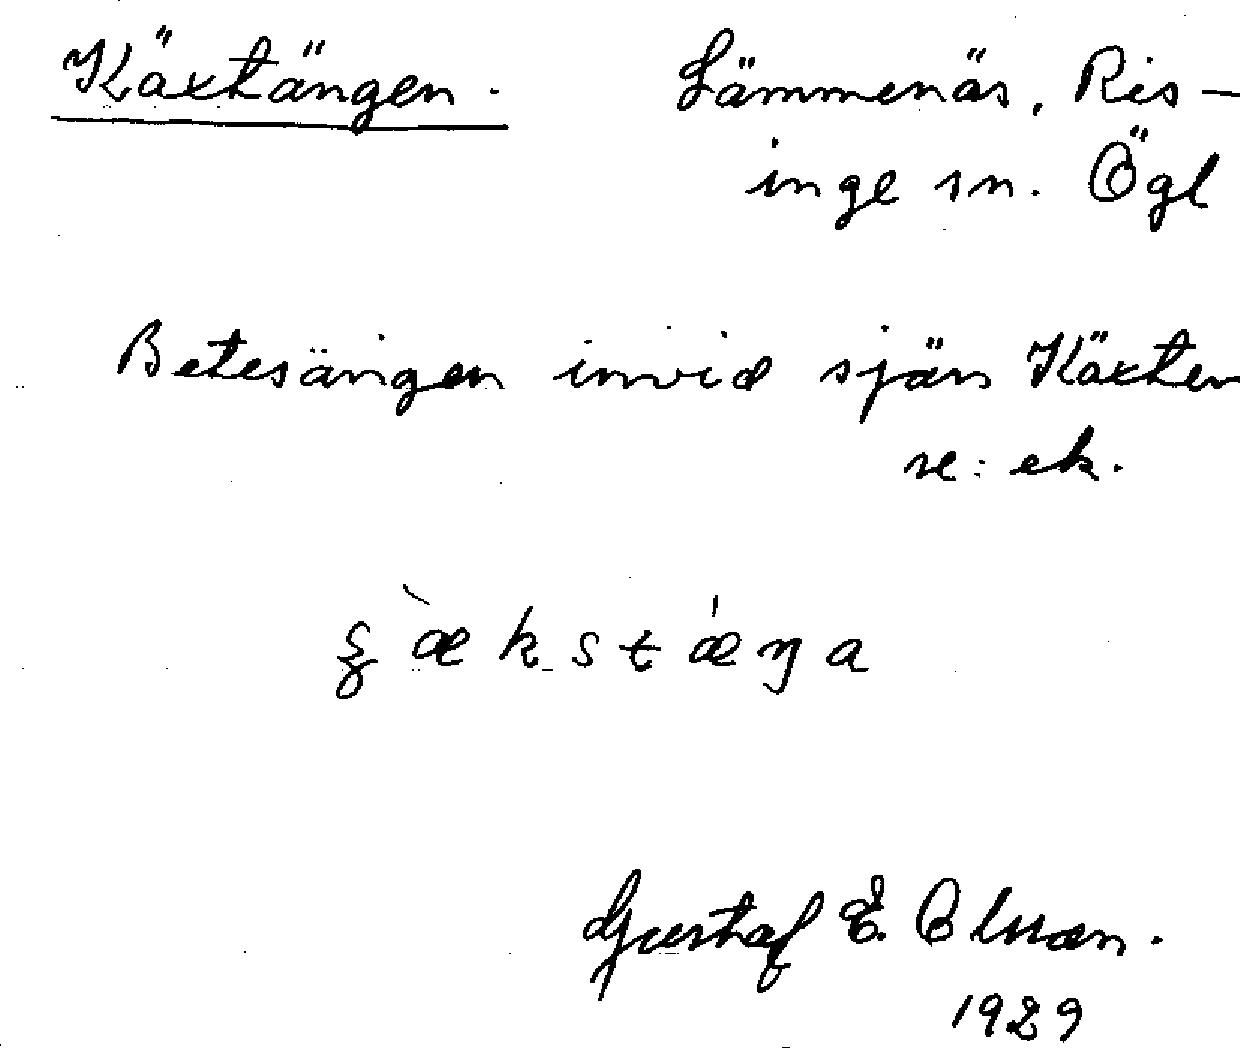 Käxtängen. Lämmenäs, Ris-
inge sn. Ögl
Betesängen invid sjön Käxten
se: ek.
ʂæ̀kstǽŋa
Gustaf E. Olsson.
1929